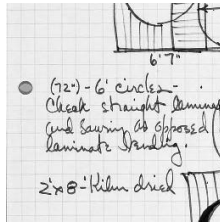 6' 7"
(72") - 6' circles -
Cheak straight laminas
and Sawing as opposed
laminate bending.
2'x8-'Kiln dried